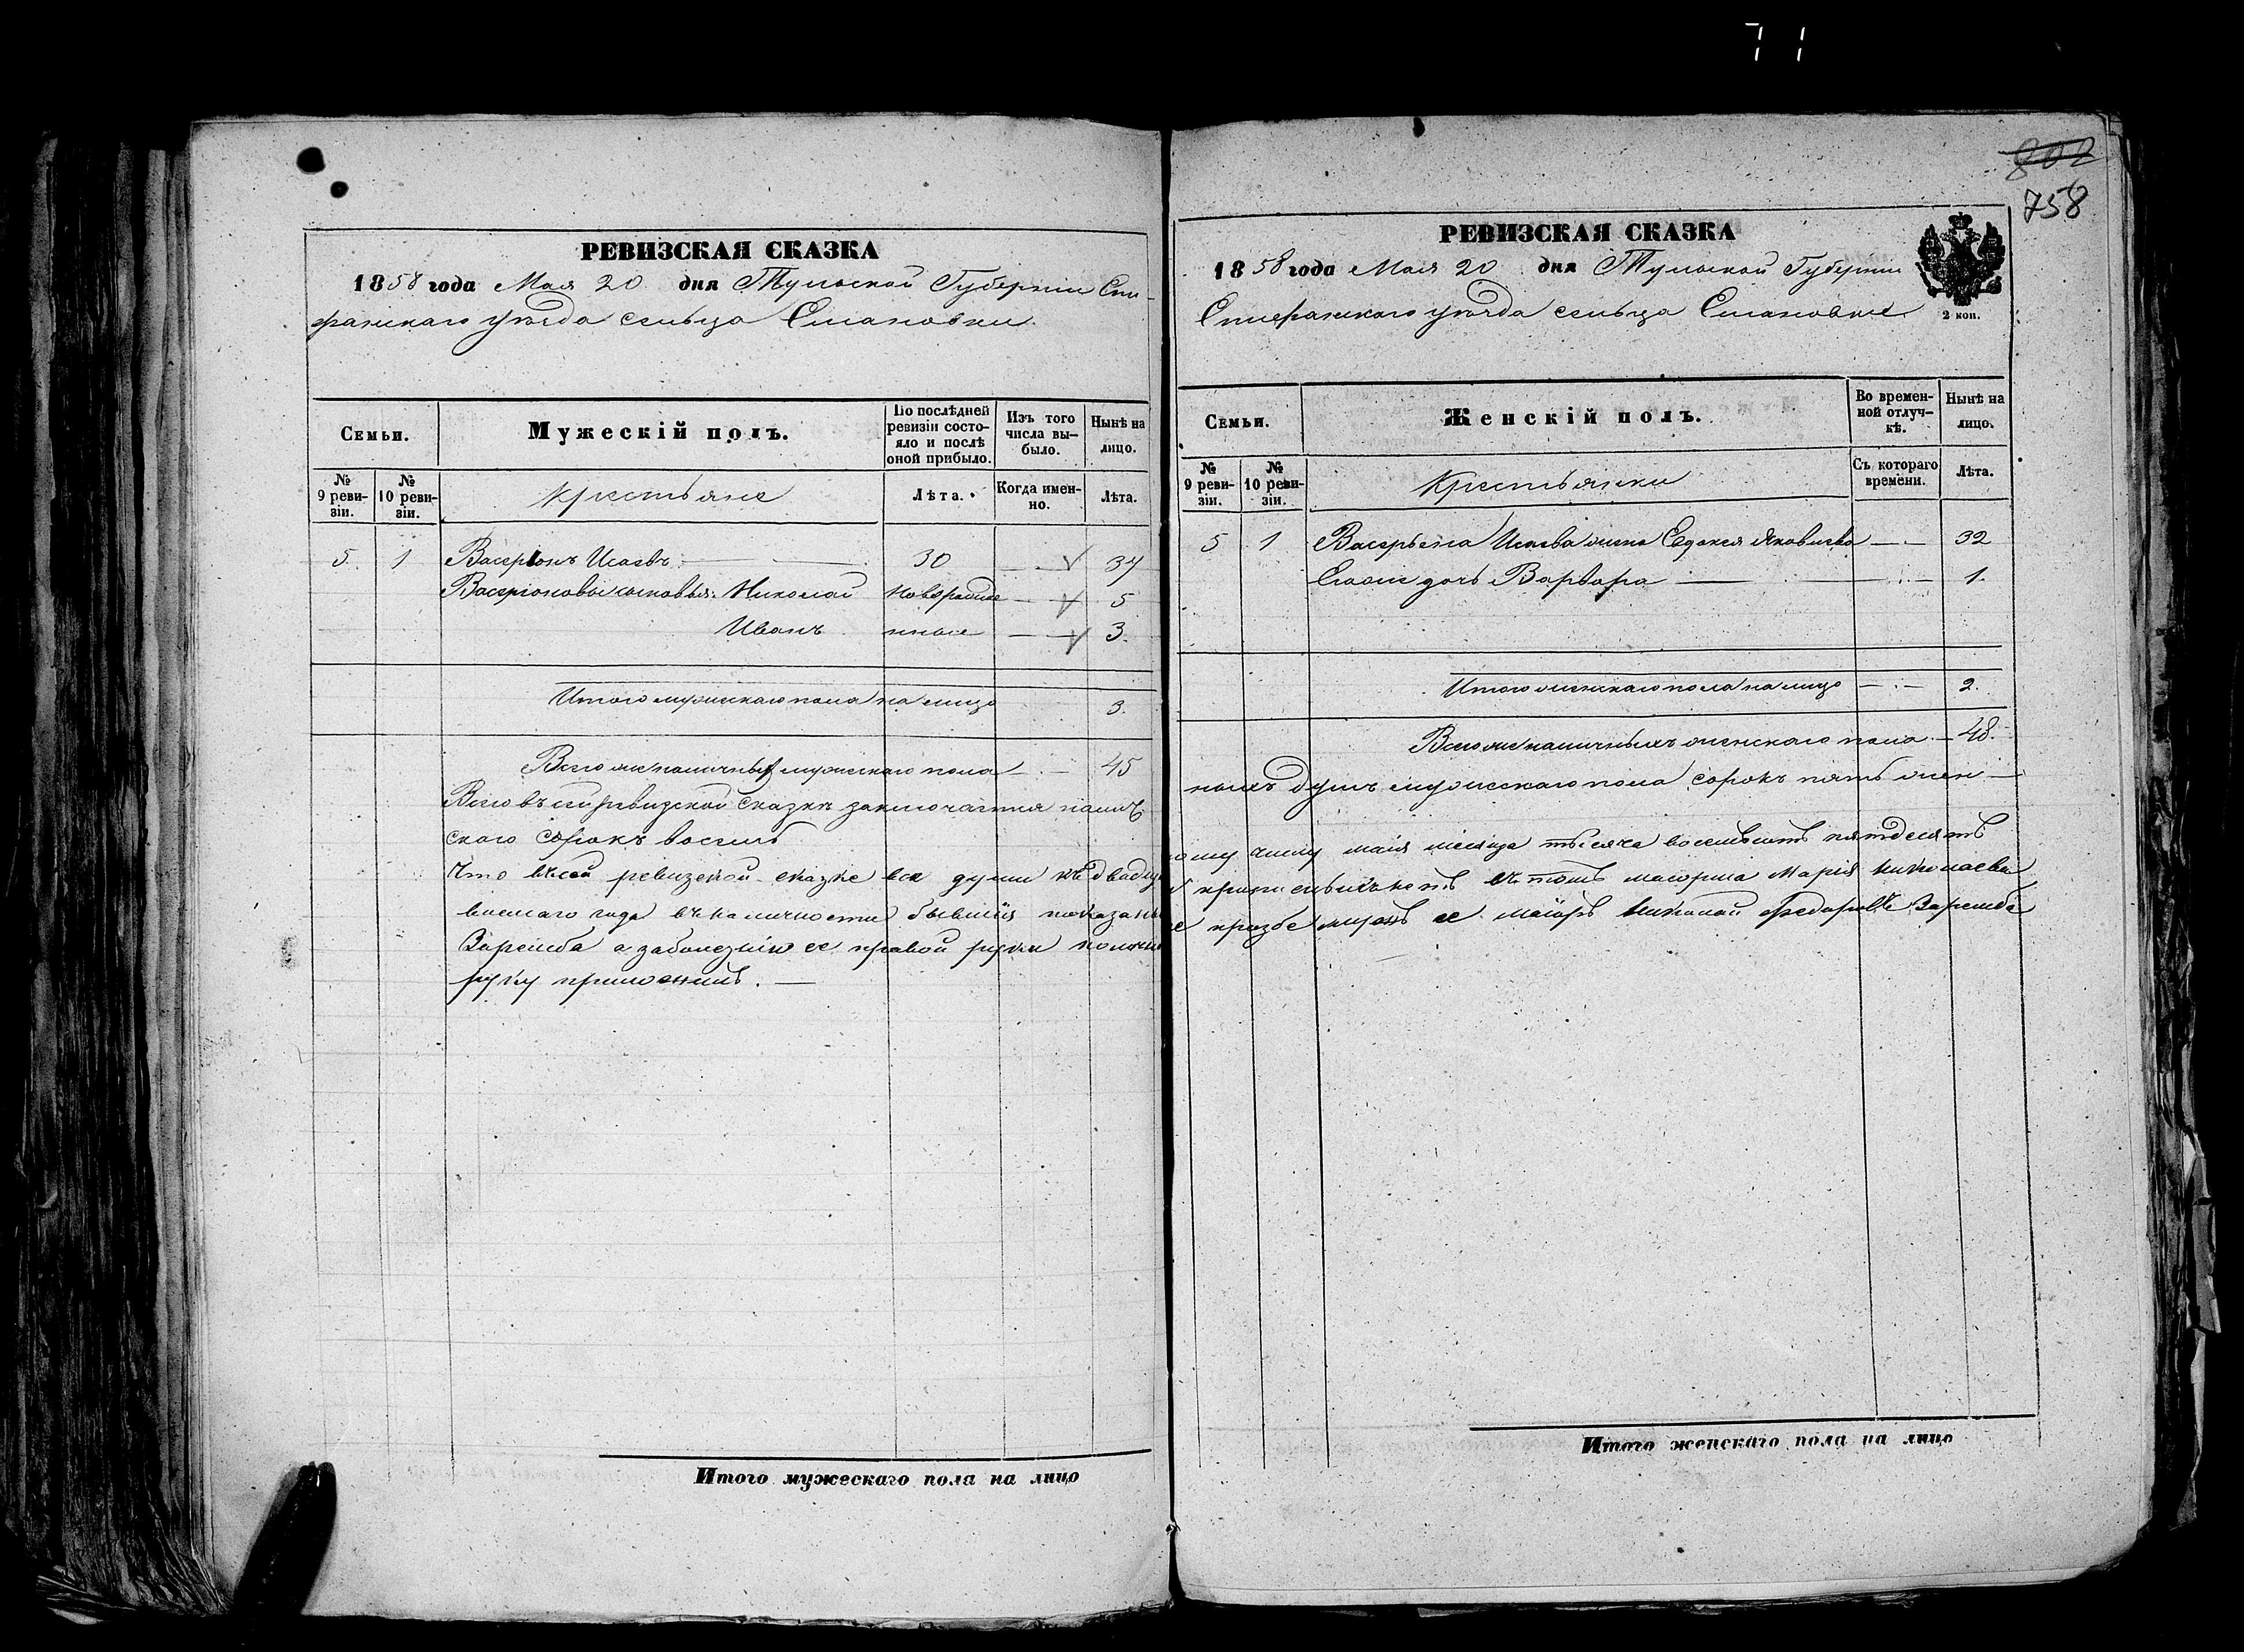 71
802
758
РЕВИЗСКАЯ СКАЗКА
1858 года Мая 20 дня Тульской Губерніи Епи-
фанскаго уѣзда сельца Слановки.
Семьи.
Мужескій полъ.
По послѣдней ревизіи состо-яло и послѣ оной прибыло.
Изъ того числа вы-было.
Нынѣ на лицо.
№ 9 реви-зіи.
№ 10 реви-зіи.
Крестьяне
Лѣта.
Когда имен-но.
Лѣта.
5 1 Исаевъ 30 37
сыновья: Николай новорожде 5
Иванъ нные 3.
Итого мужескаго пола на лицо 3.
Всего же наличныхъ мужескаго пола 45
Всего въ сей ревизской сказке заключается налич
скаго сорокъ восемь
Что въ сей ревизской сказке все души къ двадца
восмаго года въ наличности бывшія показаны
Зарембa а заболезнію ее правой руки
руку приложилъ.
Итого мужескаго пола на лицо
РЕВИЗСКАЯ СКАЗКА
1858 года Мая 20 дня Тульской Губерніи
Епифанскаго уѣзда сельца Слановки
2 коп.
Семьи.
Женскій полъ.
Во времен-ной отлуч-кѣ.
Нынѣ на лицо.
№ 9 реви-зіи.
№ 10 реви-зіи.
Крестьянки
Съ котораго времени.
Лѣта.
5 1 Исаева жена Евдокея Яковлева 32
Его же дочь Варвара 1.
Итого женскаго пола на лицо 2.
Всего же наличныхъ женскаго пола 48.
ныхъ душъ мужескаго пола сорокъ пять жен
ому числу маія месяца тысяча восемьсотъ пятдесятъ
и прописныхъ нетъ въ томъ маіорша Марія Николаева
е прозбе мужъ ее маіоръ Николай Федоровъ Заремба
Итого женскаго пола на лицо